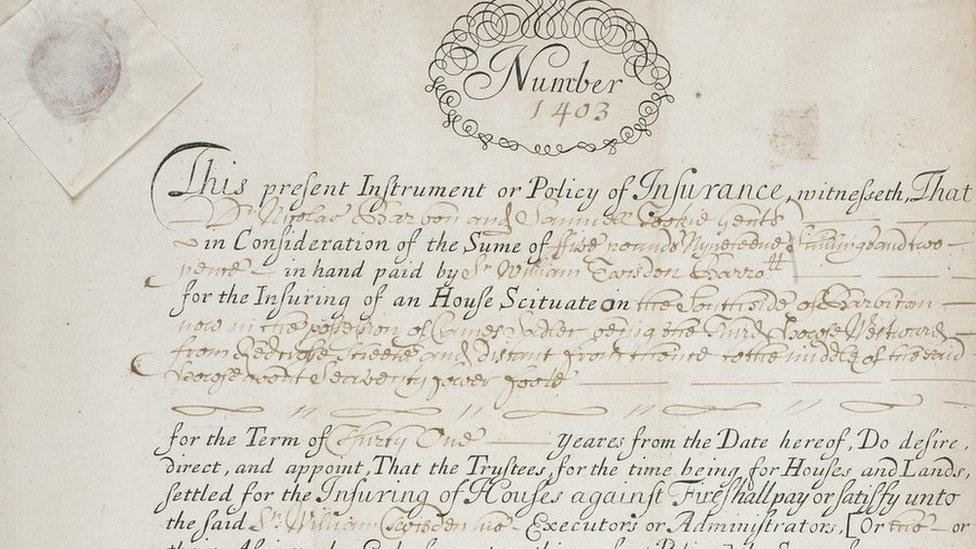 Number
1403
This present Instrument or Policy of Insurance, witnesseth, That
Dr. Nicolas Barbon and Samuell Tookie Gents
in Consideration of the Sume of ffive pounds Nyneteene Shillings and two
pence in hand paid by Sr. William Twisden Barrott
for the Insuring of an House Scituate on the South side of Barbican
now in the possession of James Sadler being the Third House Westward
from Redcrosse Streete and distant from thence to the middle of the said
house about Seaventy fower foote
for the Term of Thirty One yeares from the Date hereof, Do desire,
direct, and appoint, That the Trustees, for the time being for Houses and Lands,
settled for the Insuring of Houses against Fire shall pay or satisfy unto
the said Sr. William Twisden his Executors or Administrators, [Or the or